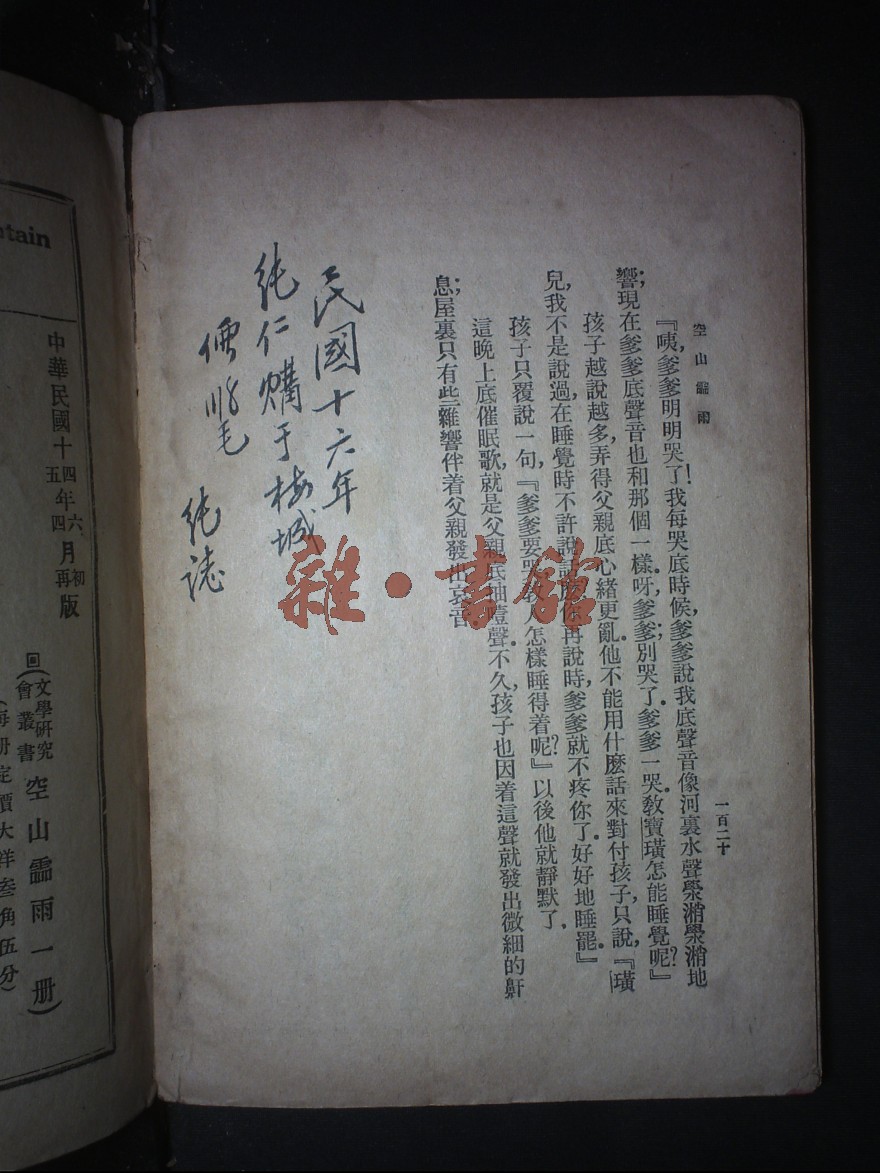 空山靈雨
一百二十
『咦,爹爹明明哭了!我每哭底時候,爹爹說我底聲音像河裏水聲澩㴥澩㴥地
響;現在爹爹底聲音也和那個一樣呀,爹爹;別哭了。爹爹一哭,教寶璜怎能睡覺呢?』
孩子越說越多,弄得父親底心緒更亂。他不能用什麽話來對付孩子,只說,『璜
兒,我不是說過,在睡覺時不許說話麽?你再說時,爹爹就不疼你了。好好地睡罷』
孩子只覆說一句,『爹爹要哭,教人怎樣睡得着呢?』以後他就靜默了。
這晚上底催眠歌,就是父親底抽噎聲。不久,孩子也因着這聲就發出微細的鼾
息;屋裏只有些雜響伴着父親發出哀音。
民國十六年
純仁購于梅城
純誌
雜·書館
ntain
中華民國十四年六月初版
五 四 再
回(文學研究會叢書 空山靈雨一册)
(每册定價大洋叁角伍分)